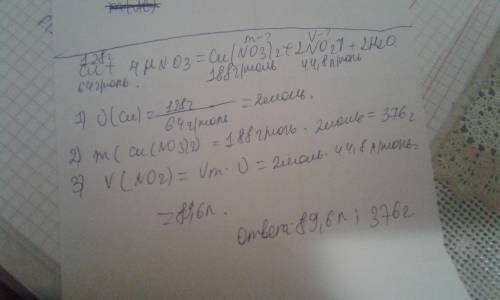 128г m-? V-?
Cu + 4HNO3 = Cu(NO3)2 + 2NO2↑ + 2H2O
64г/моль 188г/моль 44,8л/моль
1) υ(Cu) = 128г / 64г/моль = 2моль.
2) m(Cu(NO3)2) = 188г/моль · 2моль = 376г
3) V(NO2) = Vm · υ = 2моль · 44,8л/моль =
= 89,6л.
Ответ: 89,6л ; 376г